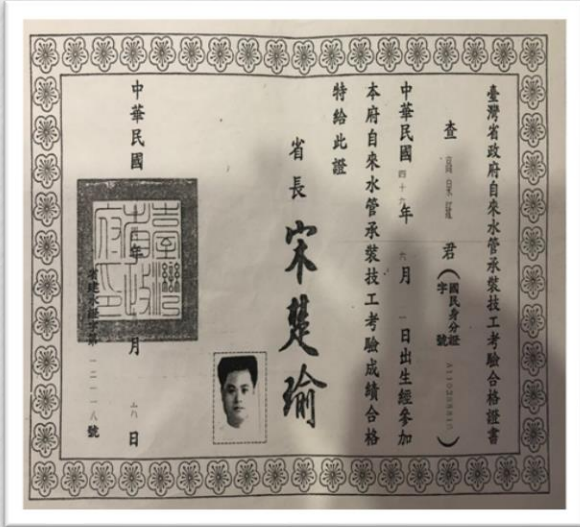 臺灣省政府自來水管承裝技工考驗合格證書
查 君（國民身分證 字 號）
中華民國四十九年六月一日出生經參加
本府自來水管承裝技工考驗成績合格
特給此證
省長 宋楚瑜
中華民國 年 月 日
臺灣省政府印
省建水證字第一二一一八號